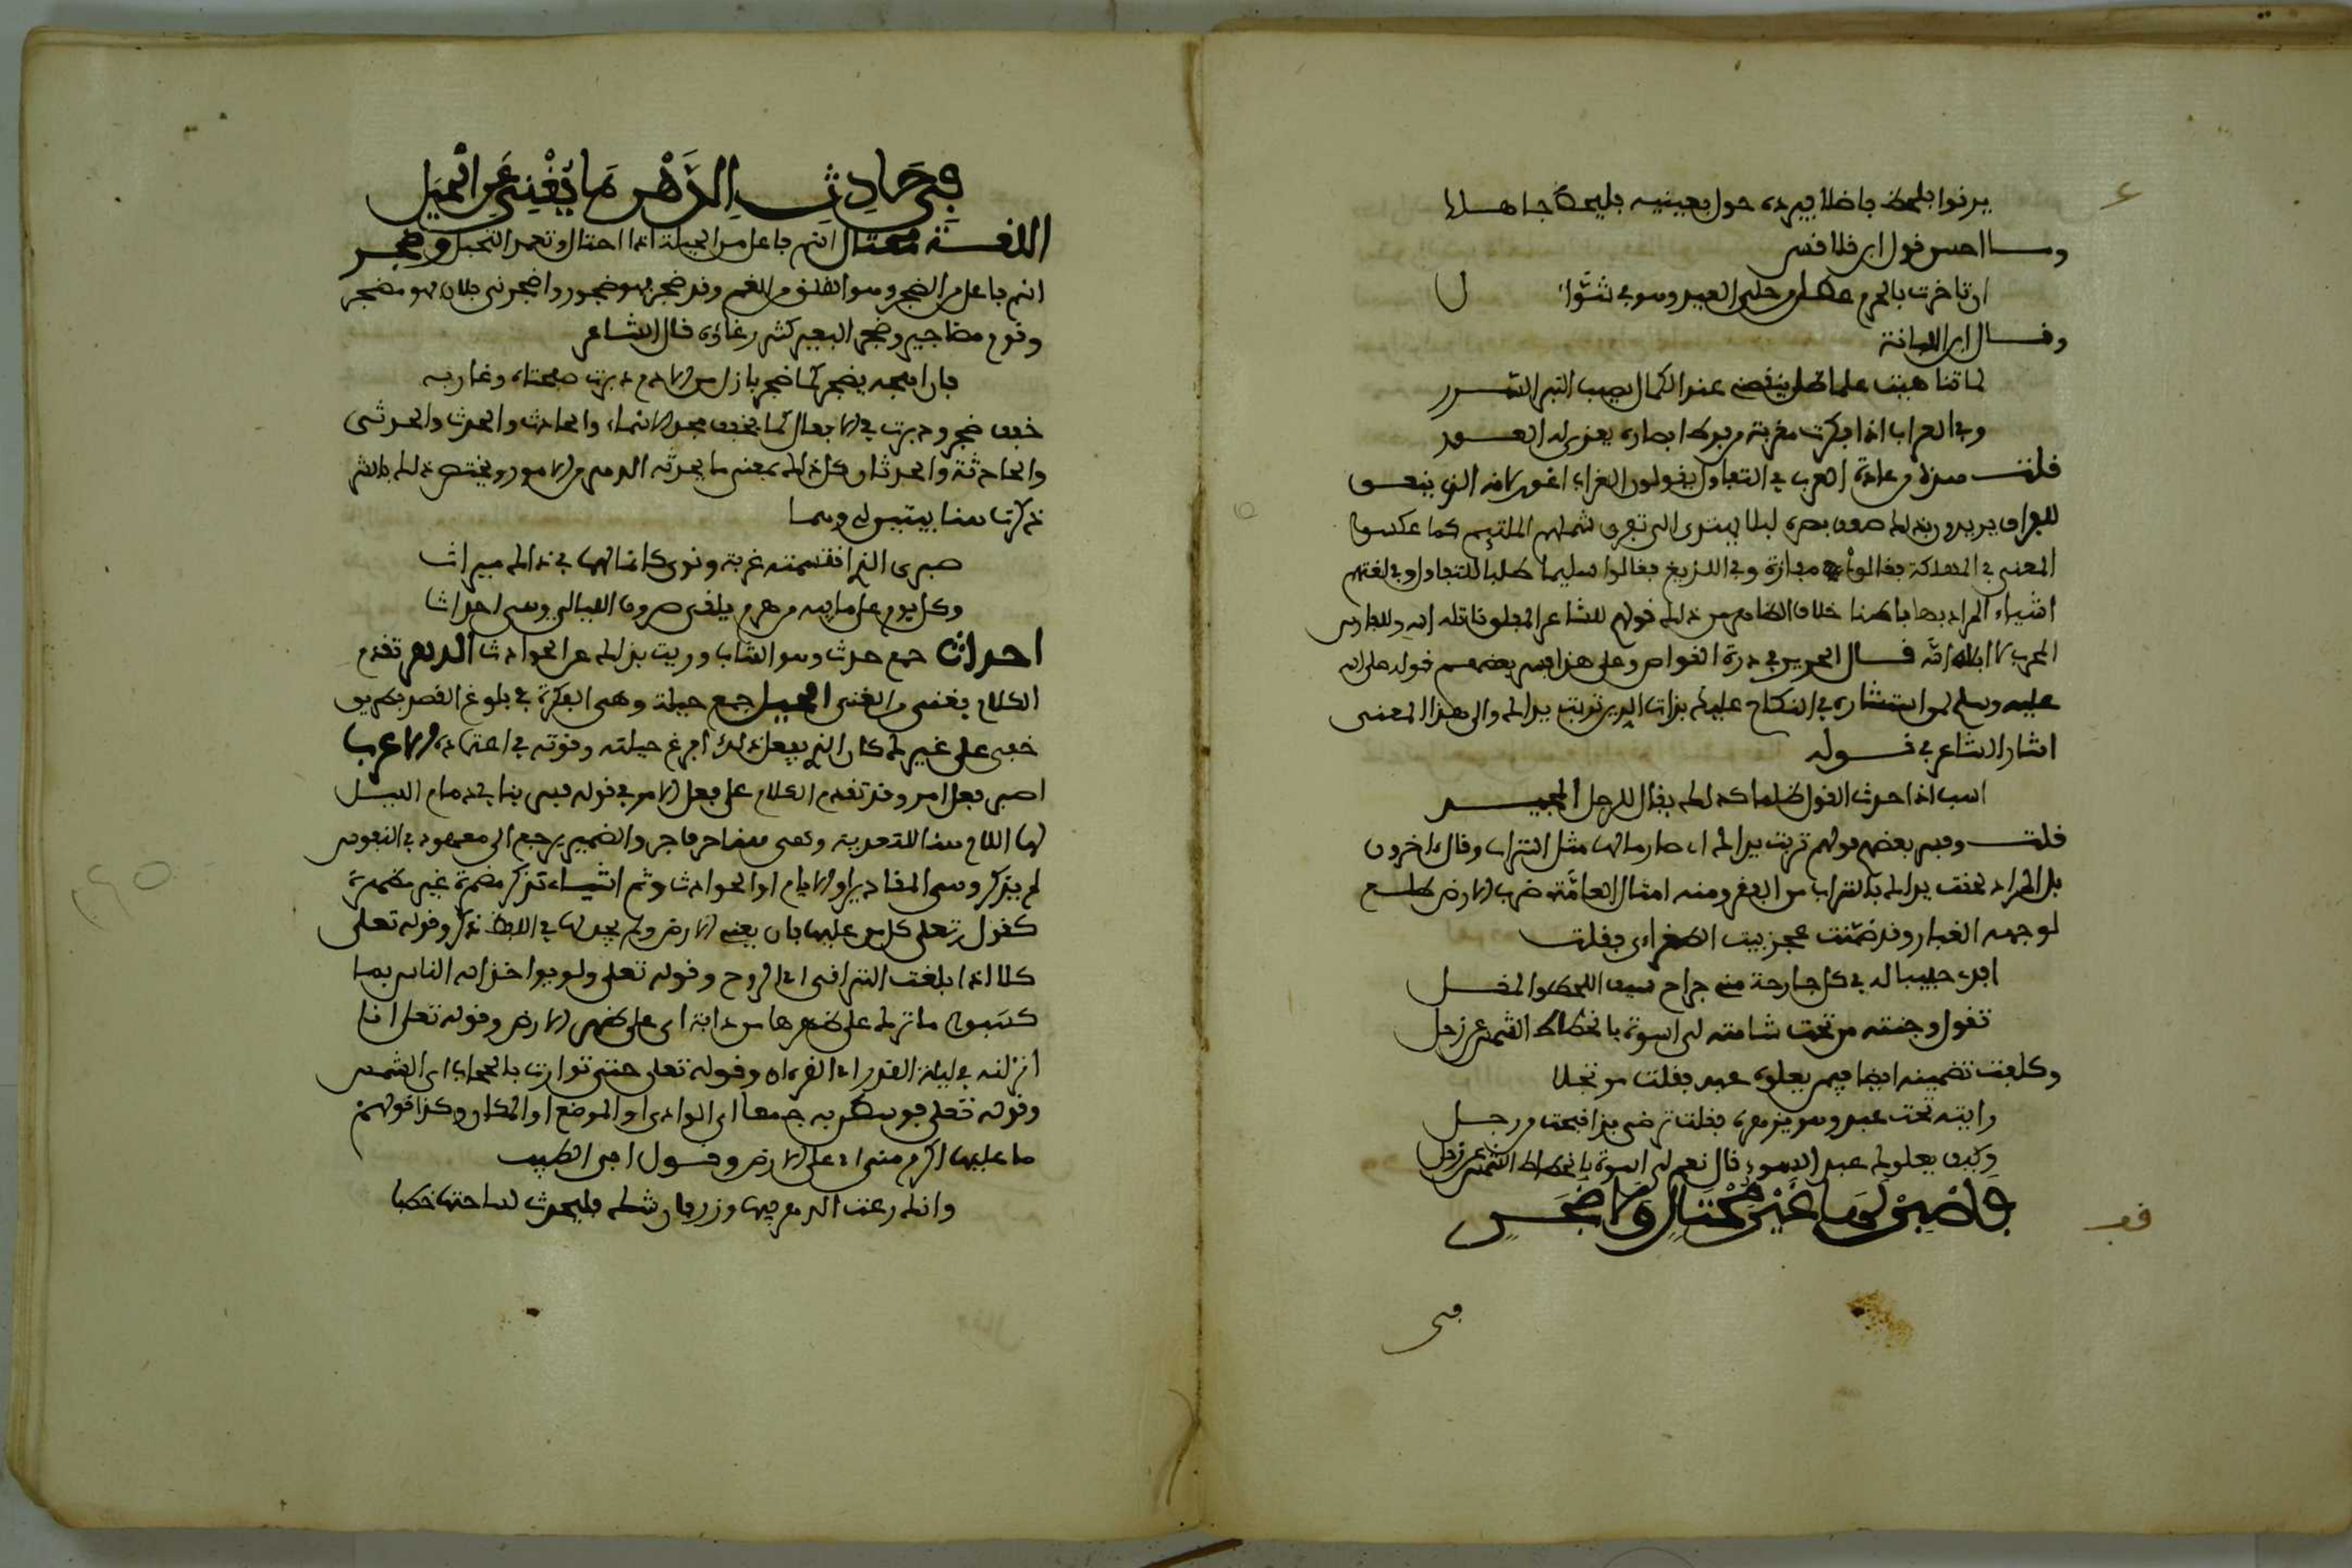 يرنوا بلحظ فاضلا فيرده حول بعينيه فليحظ جاهلا
وما احسن قول ابن قلاقس
ان تاخرت بالحرم عطل من حلى العيد وهو في شوال
وقال ابن اللبانة
لما تناهيت علما ظل ينقصنى عند الكمال يصيب النير السرر
وفي الغراب اذا فكرت مغربة من فرط ابصاره يعزى له العور
قلت هذا من عادة العرب في التفاؤل يقولون للغراب اعور لانه الذي ينعق
للفراق يريدون بذلك ضعف بصره ليلا يهتدى الى تفريق شملهم الملتيم كما عكسوا
المعنى في المهلكة فقالوا مفازة وفي اللديغ فقالوا سليما طلبا للتفاول وفي لغتهم
اشياء المراد بها باطنا خلاف الظاهر من ذلك قولهم للشاعر المفلق قاتله الله وللفارس
المحرب لا ابا له قال الحريري في درة الغواص وعلى هذا فسر بعضهم قوله صلى الله
عليه وسلم لمن استشاره في النكاح عليك بذات الدين تربت يداك والى هذا المعنى
اشار الشاعر في قوله
اسب اذا احدث القول ظلما كذلك يقال للرجل المجيد
قلت وفسر بعضهم قولهم تربت يداك اى صار مالها مثل التراب وقال اخرون
بل المراد لحقت يداك بالتراب من الفقر ومنه امثال العامة ضرب الارض طلع
لوجهه الغبار وقد ضمنت عجز بيت الطغراءى فقلت
افدى حبيبا له في كل جارحة منى جراح سيف اللحظ والمقل
تقول وجنته من تحت شامته لى اسوة بانحطاط الشمس عن زحل
وكلفت تضمينه ايضا فيمن يعلوه عبد فقلت مرتجلا
رايته تحت عبد وهو يزهره فقلت ترضى بذا قبحت من رجل
وكيف يعلوك عبد اسود قال نعم لى اسوة بانحطاط الشمس عن زحل
فاصبر لها غير محتال ولا ضجر
في
في حادث الدهر ما يغني عن الحيل
اللغة محتال اسم فاعل من الحيلة اذا احتال وتعمد التحيل وضجر
اسم فاعل من الضجر وهو القلق من الغم وقد ضجر فهو ضجور واضجرنى فلان فهو مضجر
وقوم مضاجير وضجر البعير كثر رغاؤه قال الشاعر
فان اهجه يضجر كما ضجر بازل من الادم دبرت صفحتاه وغاربه
خفف ضجر ودبرت في الافعال كما يخفف فخذ في الاسماء والحادث والحدث والحدثى
والحادثة والحدثان كل ذلك بمعنى ما يحدثه الدهر من الامور ويختص ذلك بالشر
ذكرت هنا بيتين لى وهما
صبرى الذي اقتسمته غربة ونوى كانما لهما في ذاك ميراث
وكل يوم على ما فيه من هرم يلقى صروف الليالى وهى احداث
احداث جمع حدث وهو الشاب ووريت بذلك عن الحوادث الدهر تقدم
الكلام يغنى من الغنى الحيل جمع حيلة وهى الفكرة في بلوغ القصد بطريق
خفى على غيرك كان الذي يفعل ذلك افرغ حيلته وقوته في اعتماده الاعراب
اصبر فعل امر وقد تقدم الكلام على فعل الامر في قوله فسر بنا في ذمام الليل
لها اللام هنا للتعدية وهى هنا حرف جر والضمير يرجع الى معهود في النفوس
لم يذكر وهى المقادير او الايام او الحوادث وثم اشياء تذكر مضمرة غير مظهرة
كقوله تعلى كل من عليها فان يعنى الارض ولم يجر لها في اللفظ ذكر وقوله تعلى
كلا اذا بلغت التراقى اى الروح وقوله تعلى ولو يواخذ الله الناس بما
كسبوا ما ترك على ظهرها من دابة اى على ظهر الارض وقوله تعلى انا
انزلنه في ليلة القدر اى القرءان وقوله تعلى حتى توارت بالحجاب اى الشمس
وقوله تعلى فوسطن به جمعا اى الوادى او الموضع او المكان وكذا قولهم
ما عليها اكرم منى اى على الارض وقول ابى الطيب
وانك رعت الدهر فيها وريبه فان شك فليحدث لساحتها خطبا